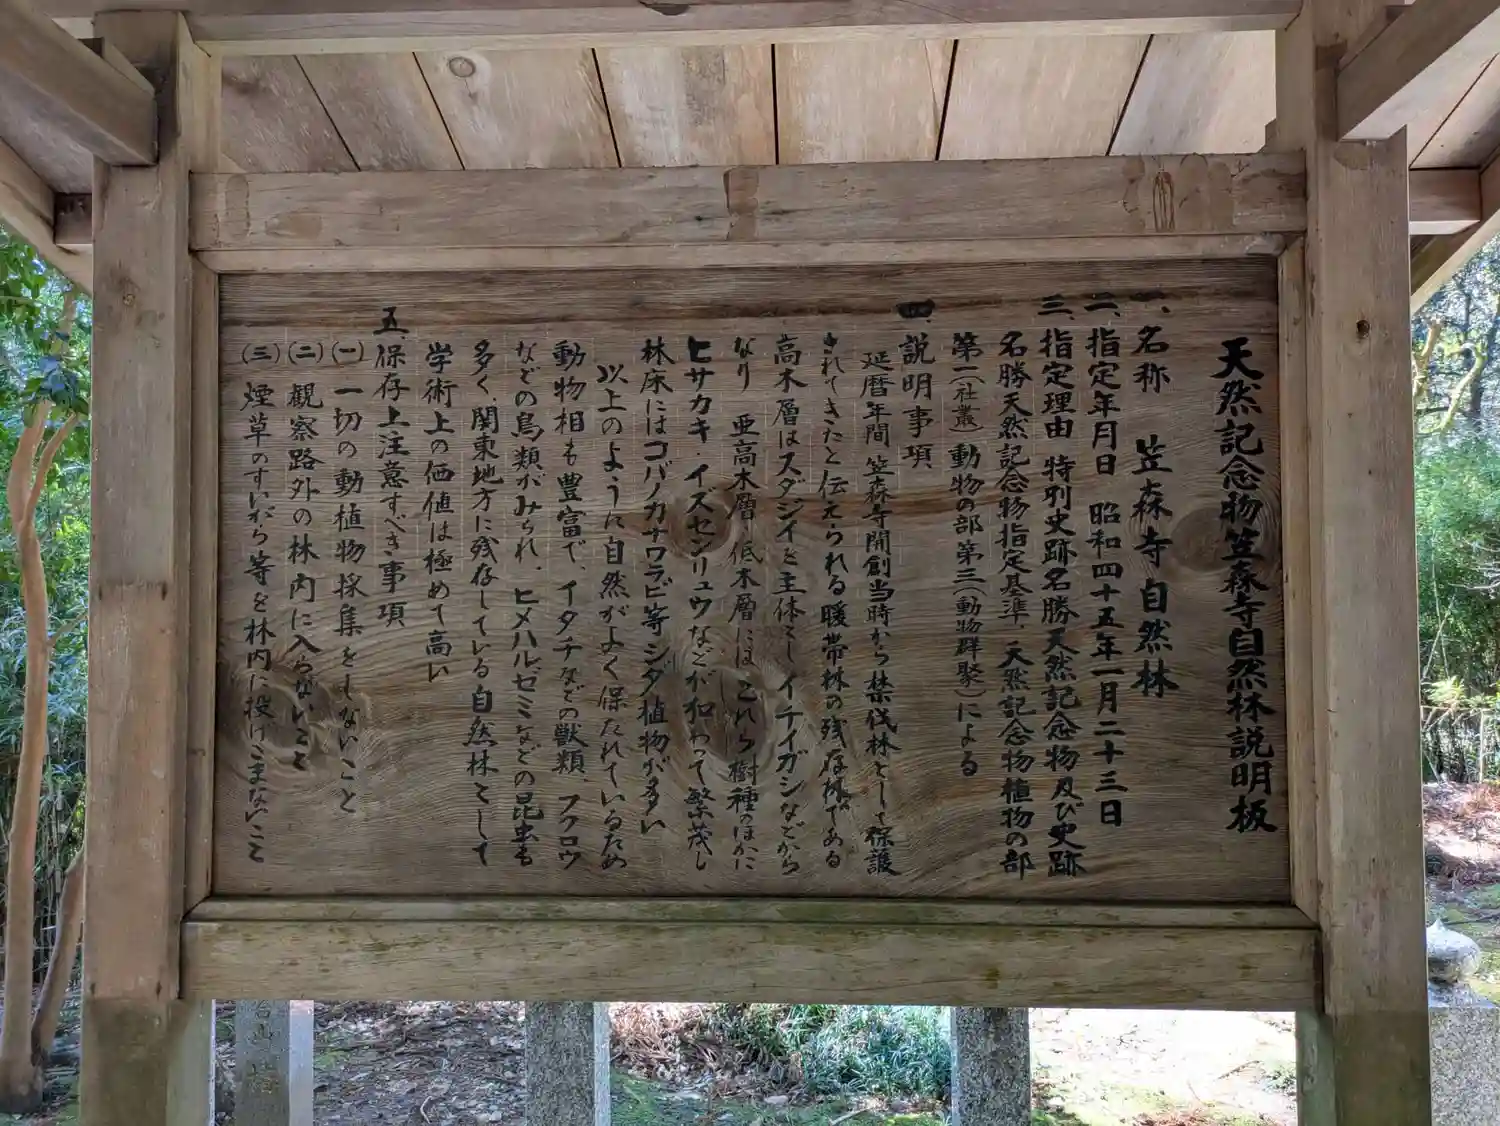 天然記念物笠森寺自然林説明板
一、名称　笠森寺自然林
二、指定年月日　昭和四十五年一月二十三日
三、指定理由　特別史跡名勝天然記念物及び史跡
名勝天然記念物指定基準、天然記念物植物の部
第二（社叢）動物の部第三（動物群聚）による
四、説明事項
延暦年間　笠森寺開創当時から禁伐林として保護
されてきたと伝えられる暖帯林の残存林である
高木層はスダジイを主体とし　イチイガシなどから
なり　亜高木層　低木層には　これら樹種のほかに
ヒサカキ・イズセンリュウなどが加わって繁茂し
林床にはコバノカナワラビ等シダ植物が多い
以上のように自然がよく保たれているため
動物相も豊富で、イタチなどの獣類、フクロウ
などの鳥類がみられ、ヒメハルゼミなどの昆虫も
多く、関東地方に残存している自然林として
学術上の価値は極めて高い
五、保存上注意すべき事項
（一）一切の動植物採集をしないこと
（二）観察路外の林内に入らないこと
（三）煙草のすいがら等を林内に投げこまないこと